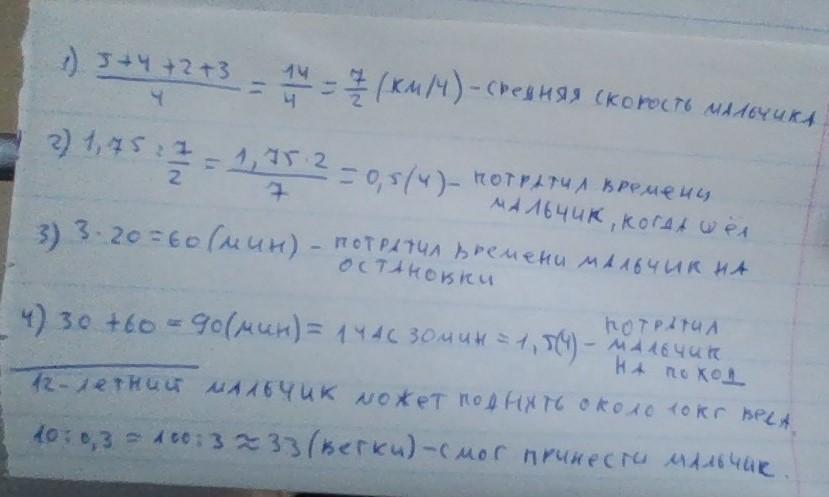 1) (5+4+2+3)/4 = 14/4 = 7/2 (км/ч) - средняя скорость мальчика
2) 1,75 : 7/2 = (1,75·2)/7 = 0,5(ч) - потратил времени
мальчик, когда шёл
3) 3·20=60(мин) - потратил времени мальчик на
остановки
4) 30+60=90(мин)=1 час 30 мин=1,5(ч) - потратил
мальчик
на поход
12-летний мальчик может поднять около 10кг веса.
10:0,3=100:3≈33(ветки)-смог принести мальчик.